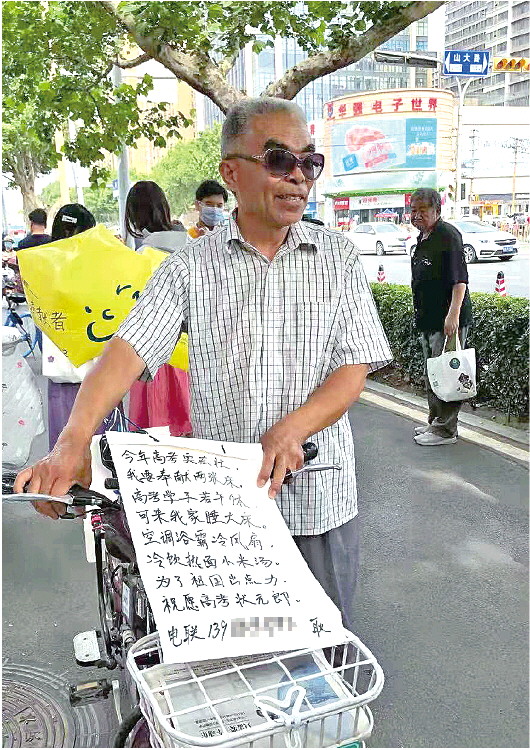 山大路
华强电子世界
今年高考
我愿奉献两张床。
高考学子若干
可来我家睡大床。
空调浴霸冷风扇，
冷饮热面小米汤。
为了祖国出点力，
祝愿高考状元郎。
电联139